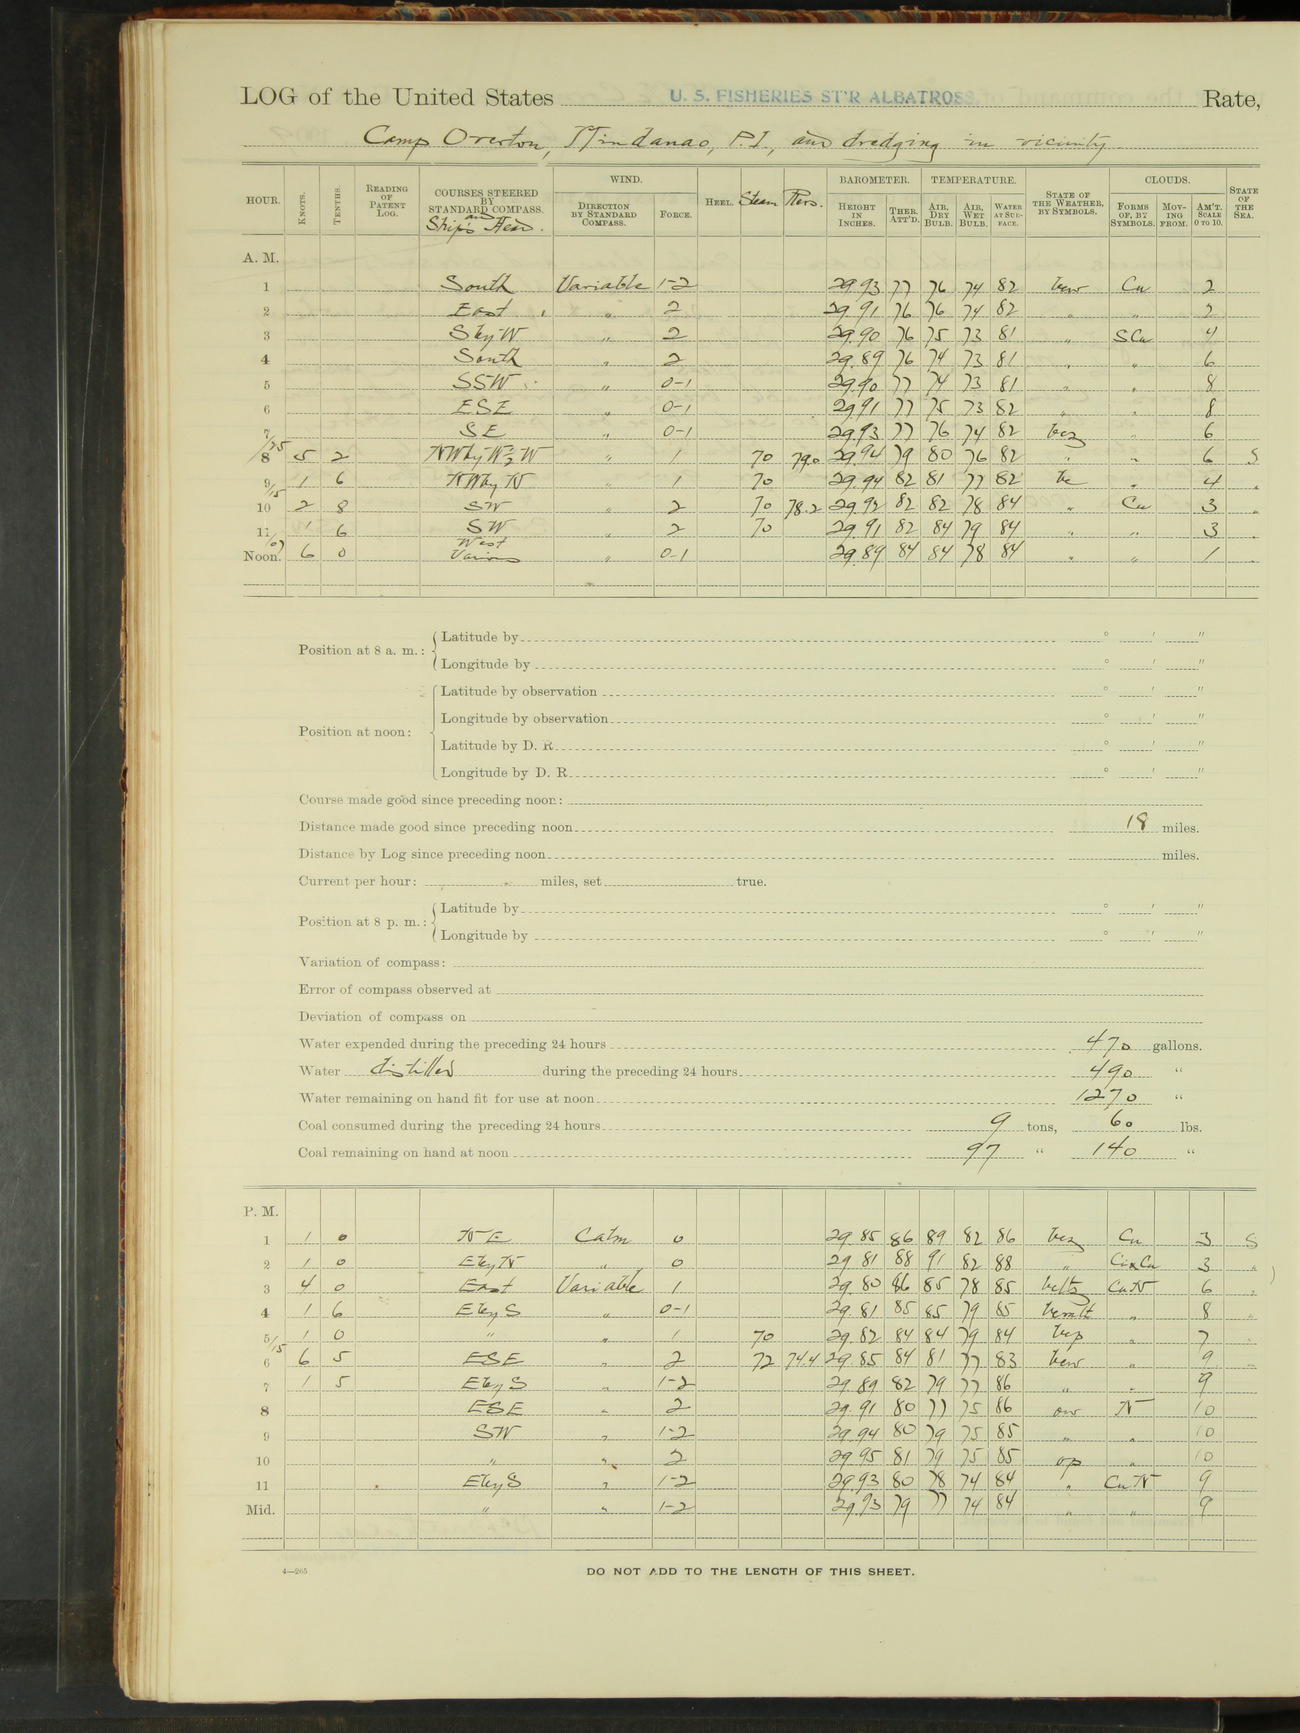 LOG of the United States U. S. FISHERIES ST'R ALBATROSS. Rate,
Camp Overton, Mindanao, P.I., and dredging in vicinity
HOUR. KNOTS. TENTHS. READING OF PATENT LOG. COURSES STEERED BY STANDARD COMPASS. and Ship's Head. WIND. DIRECTION BY STANDARD COMPASS. FORCE. HEEL. Steam Revs. BAROMETER. HEIGHT IN INCHES. THER. ATT'D. TEMPERATURE. AIR, DRY BULB. AIR, WET BULB. WATER AT SURFACE. STATE OF THE WEATHER, BY SYMBOLS. CLOUDS. FORMS OF, BY SYMBOLS. MOVING FROM. AM'T. SCALE 0 TO 10. STATE OF THE SEA.
A. M.
1 South Variable 1-2 29.93 77 76 74 82 bcw Cu 2
2 East " 2 29.91 76 76 74 82 " " 2
3 SbyW " 2 29.90 76 75 73 81 " SCu 4
4 South " 2 29.89 76 74 73 81 " " 6
5 SSW " 0-1 29.90 77 74 73 81 " " 8
6 ESE " 0-1 29.91 77 75 73 82 " " 8
7 SE " 0-1 29.93 77 76 74 82 bcz " 6
8 5 2 NWbyW½W " 1 70 79.0 29.94 79 80 76 82 " " 6 S
9 1 6 NWbyN " 1 70 29.94 82 81 77 82 bc " 4 "
10 2 8 SW " 2 70 78.2 29.92 82 82 78 84 " Cu 3 "
11 1 6 SW " 2 70 29.91 82 84 79 84 " " 3 "
Noon. 6 0 West Various " 0-1 29.89 84 84 78 84 " " 1
Position at 8 a. m.: Latitude by ° ' "
Longitude by ° ' "
Position at noon: Latitude by observation ° ' "
Longitude by observation ° ' "
Latitude by D. R. ° ' "
Longitude by D. R. ° ' "
Course made good since preceding noon:
Distance made good since preceding noon 18 miles.
Distance by Log since preceding noon miles.
Current per hour: miles, set true.
Position at 8 p. m.: Latitude by ° ' "
Longitude by ° ' "
Variation of compass:
Error of compass observed at
Deviation of compass on
Water expended during the preceding 24 hours 470 gallons.
Water distilled during the preceding 24 hours 490 "
Water remaining on hand fit for use at noon 1270 "
Coal consumed during the preceding 24 hours 9 tons, 60 lbs.
Coal remaining on hand at noon 97 " 140 "
P. M.
1 1 0 NE Calm 0 29.85 86 89 82 86 bcz Cu 3 S
2 1 0 EbyN " 0 29.81 88 91 82 88 " Ci&Cu 3 "
3 4 0 East Variable 1 29.80 86 85 78 85 CuN 6 "
4 1 6 EbyS " 0-1 29.81 85 85 79 85 " 8 "
5 1 0 " " 1 70 29.82 84 84 79 84 bcp " 7 "
6 6 5 ESE " 2 72 74.4 29.85 84 81 77 83 bcw " 9 "
7 1 5 EbyS " 1-2 29.89 82 79 77 86 " " 9
8 ESE " 2 29.91 80 77 75 86 ow N 10
9 SW " 1-2 29.94 80 79 75 85 " " 10
10 " " 2 29.95 81 79 75 85 op " 10
11 EbyS " 1-2 29.93 80 78 74 84 " CuN 9
Mid. " " 1-2 29.93 79 77 74 84 " " 9
4—265 DO NOT ADD TO THE LENGTH OF THIS SHEET.